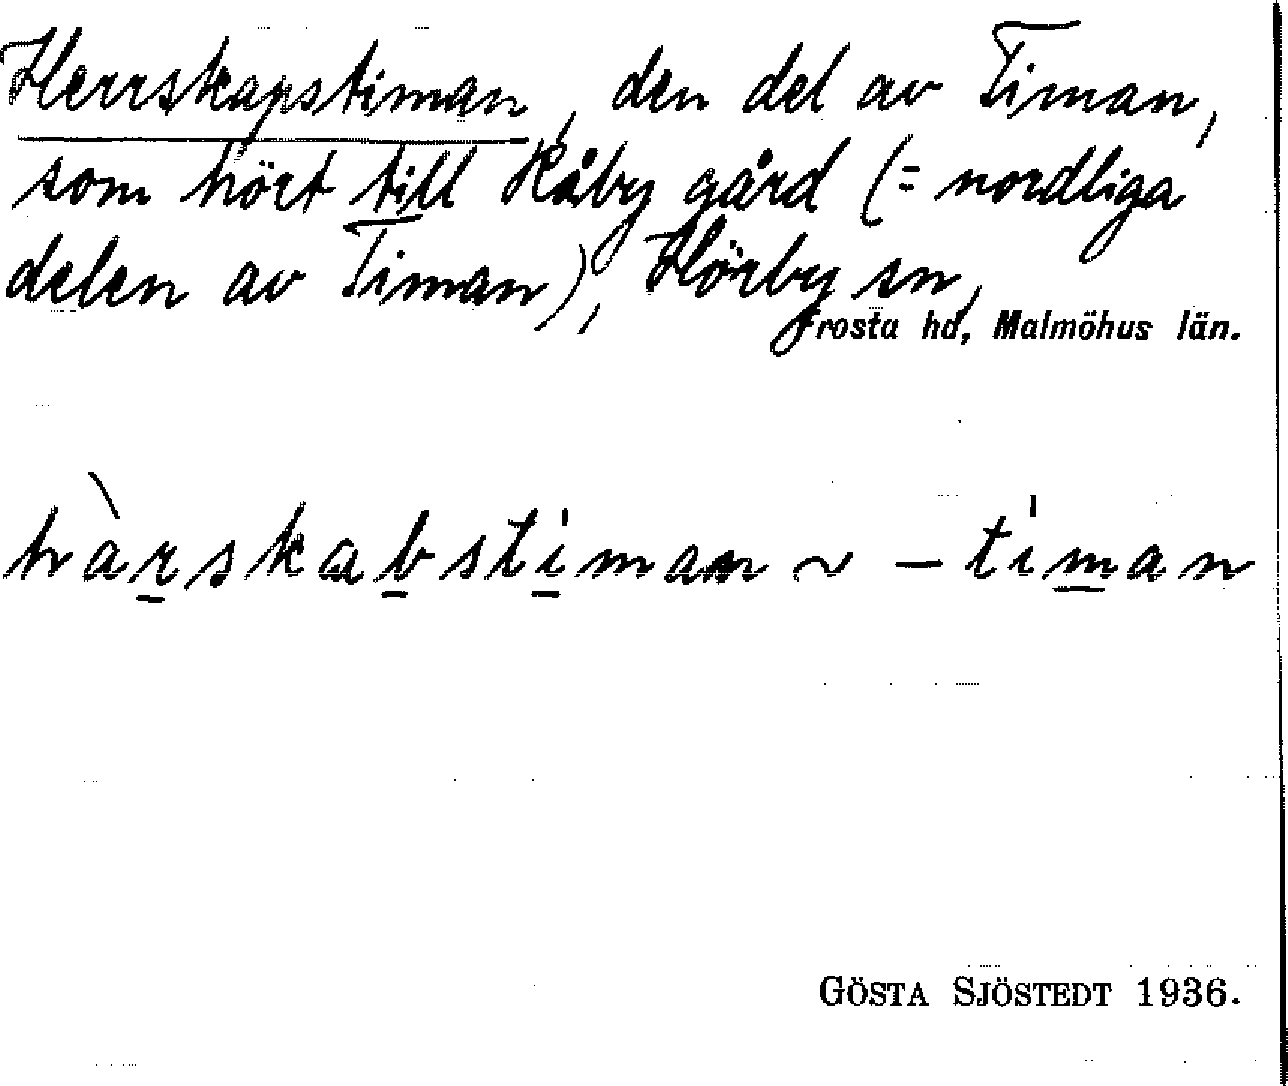 Herrskapstiman, den del av Timan,
som hört till Råby gård (= nordliga
delen av Timan), Hörby sn,
Frosta hd, Malmöhus län.
hàrskabstiman ~ – timan
GÖSTA SJÖSTEDT 1936.